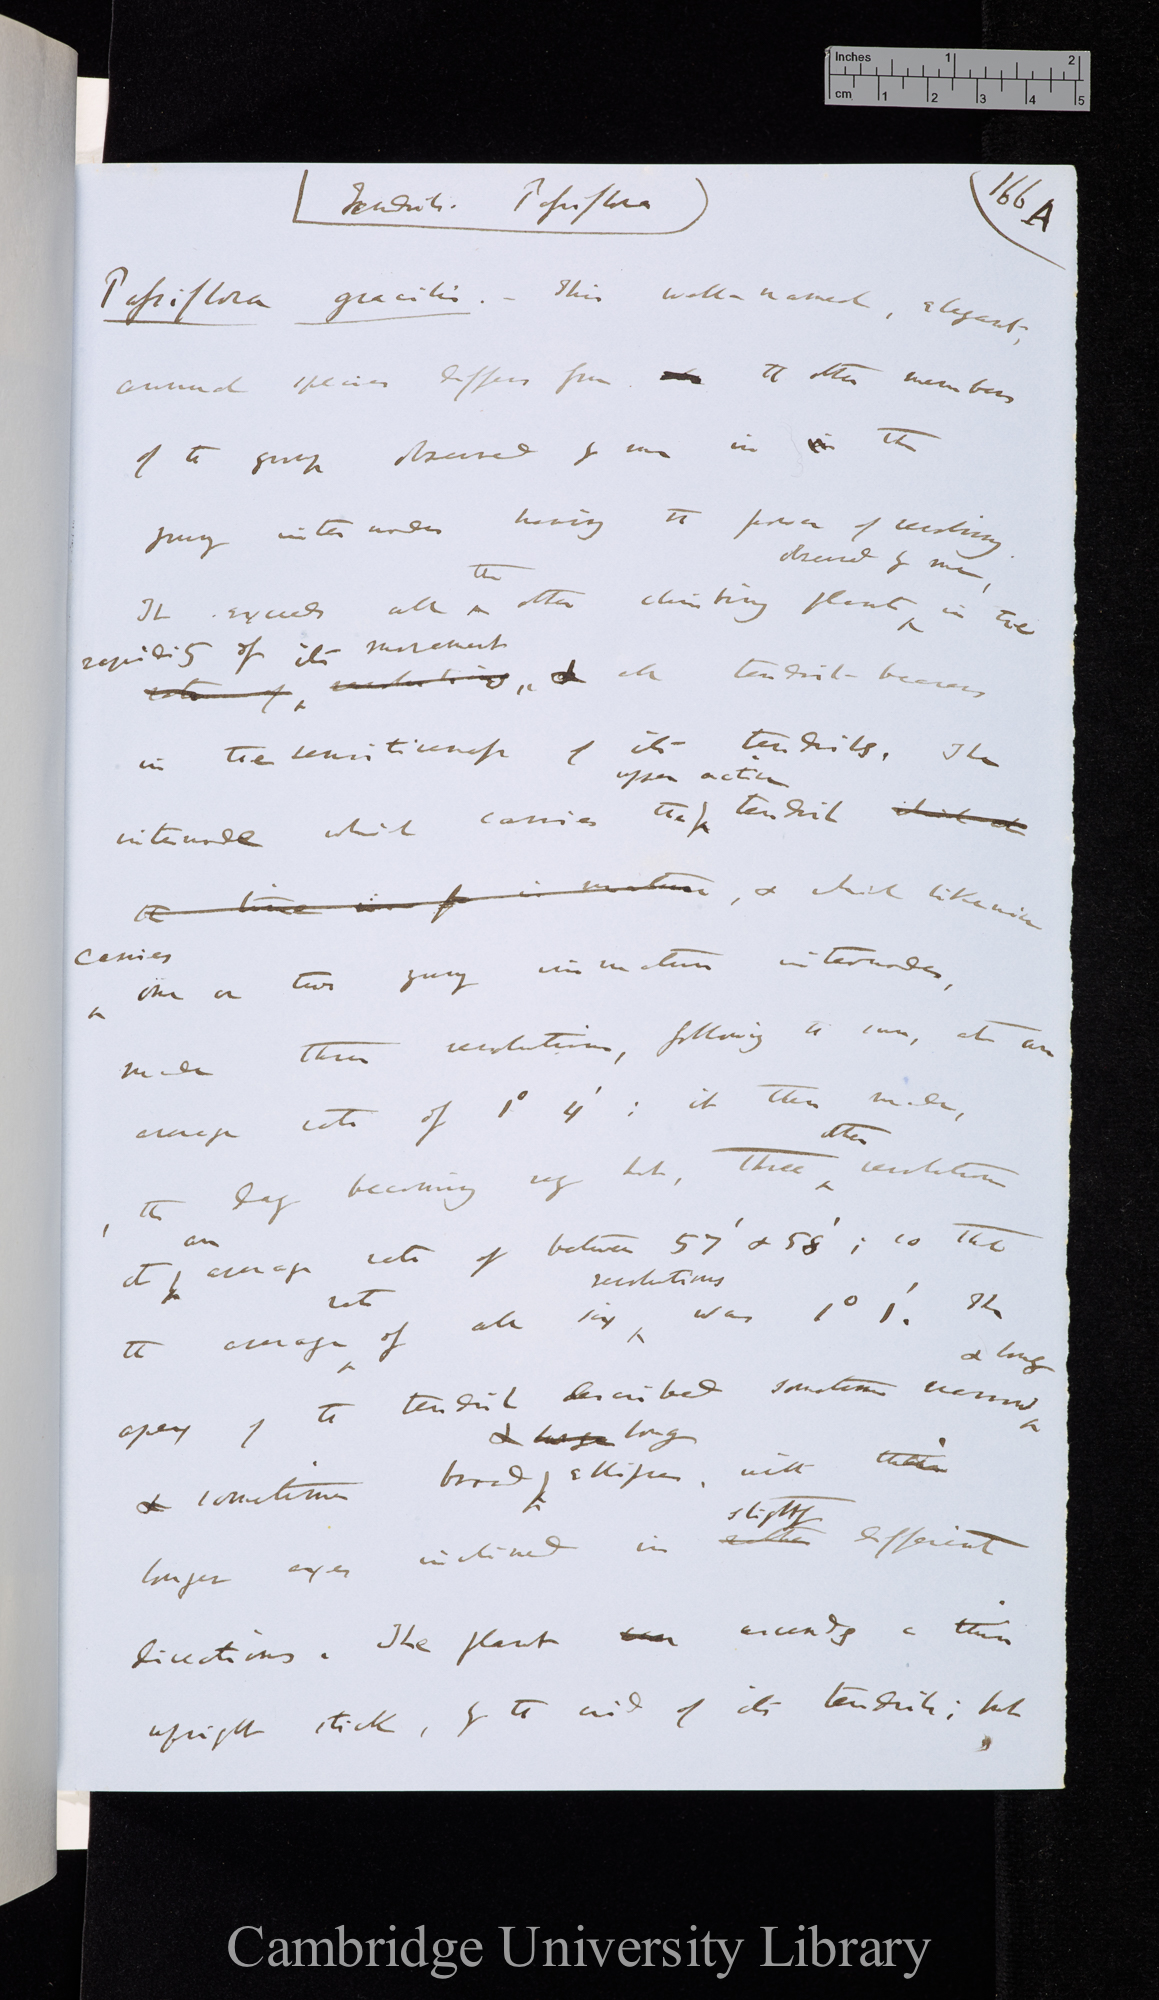 Inches 1 2
cm 1 2 3 4 5
Tendrils. Passiflora
166 A
Passiflora gracilis. - This well-named, elegant,
annual species differs from the other members
of the group observed by me in the
young internodes having the power of revolving.
observed by me,
the
It exceeds all other climbing plants in the
rapidity of its movement
rate of revolving, & all tendril-bearers
in the sensitiveness of its tendrils. The
upper active
internode which carries the tendril which at
the time is in mature, & which likewise
carries
one or two young immature internodes,
made three revolutions, following the sun, at an
average rate of 1° 4'; it then made,
other
the day becoming very hot, three revolutions
an
at average rate of between 57' & 58'; so that
rate revolutions
the average of all six was 1° 1'. The
& long
apex of the tendril described sometimes narrow
& large long
& sometimes broad ellipses, with their
slightly
longer axes inclined in rather different
directions. The plant can ascends a thin
upright stick, by the aid of its tendrils; but
Cambridge University Library